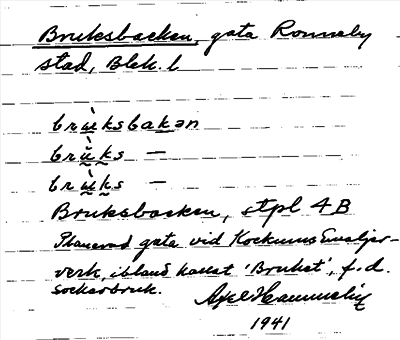 Bruksbacken, gata Ronneby
stad, Blek. l
brὺksbakən
brὺks —
brὺks —
Bruksbacken, stpl 4B
Planerad gata vid Kockums Emaljer-
verk, ibland kallat 'Bruket', f.d.
sockerbruk.
Axel
1941